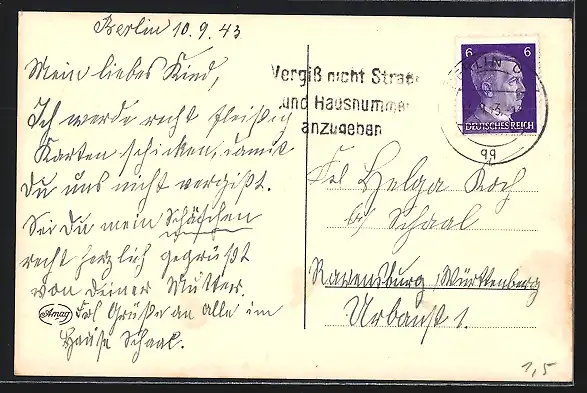 Berlin 10.9.43
Mein liebes Kind,
Ich werde recht fleißig
Karten schicken, damit
Du uns nicht vergißt.
Sei Du mein Schäfchen
recht herzlich gegrüßt
von Deiner Mutter.
Amag
Grüße an alle im
Hause Schaal.
Vergiß nicht Straße
und Hausnummer
anzugeben
6 6
DEUTSCHES REICH
BERLIN
qq
Frl Helga Koch
b/ Schaal
Ravensburg, Württenberg
Urbanst 1.
1,5